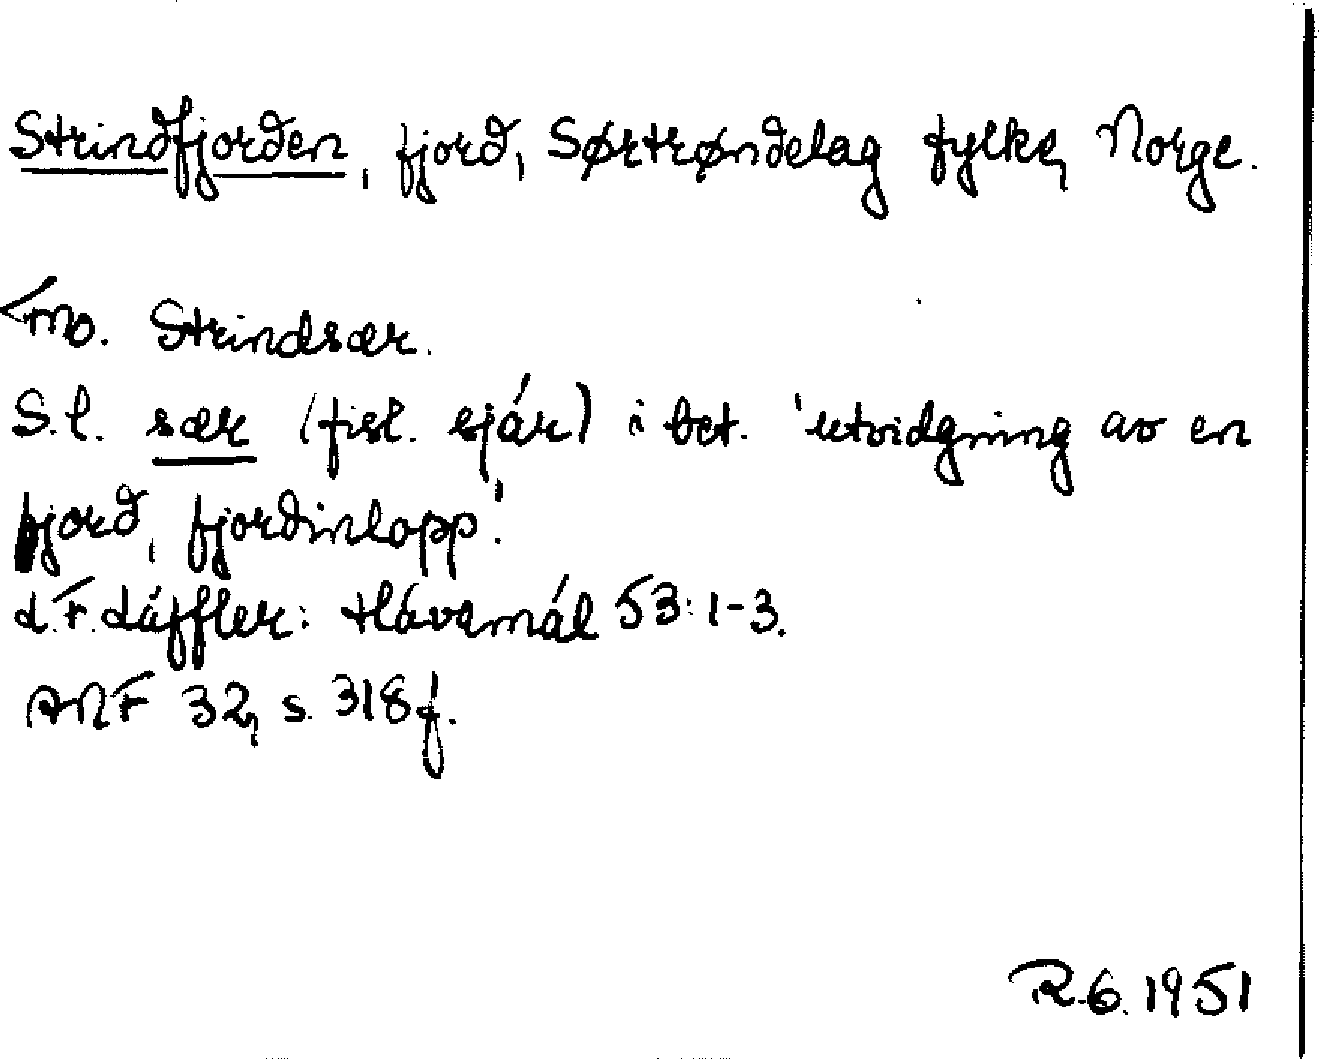 Strindfjorden, fjord, Sørtrøndelag fylke, Norge.
<fno. Strindsær.
S.l. sær (fisl. sjár) i bet. 'utvidgning av en
fjord, fjordinlopp'.
L.F. Läffler: Hávamál 53:1-3.
ANF 32, s. 318 f.
R.6. 1951